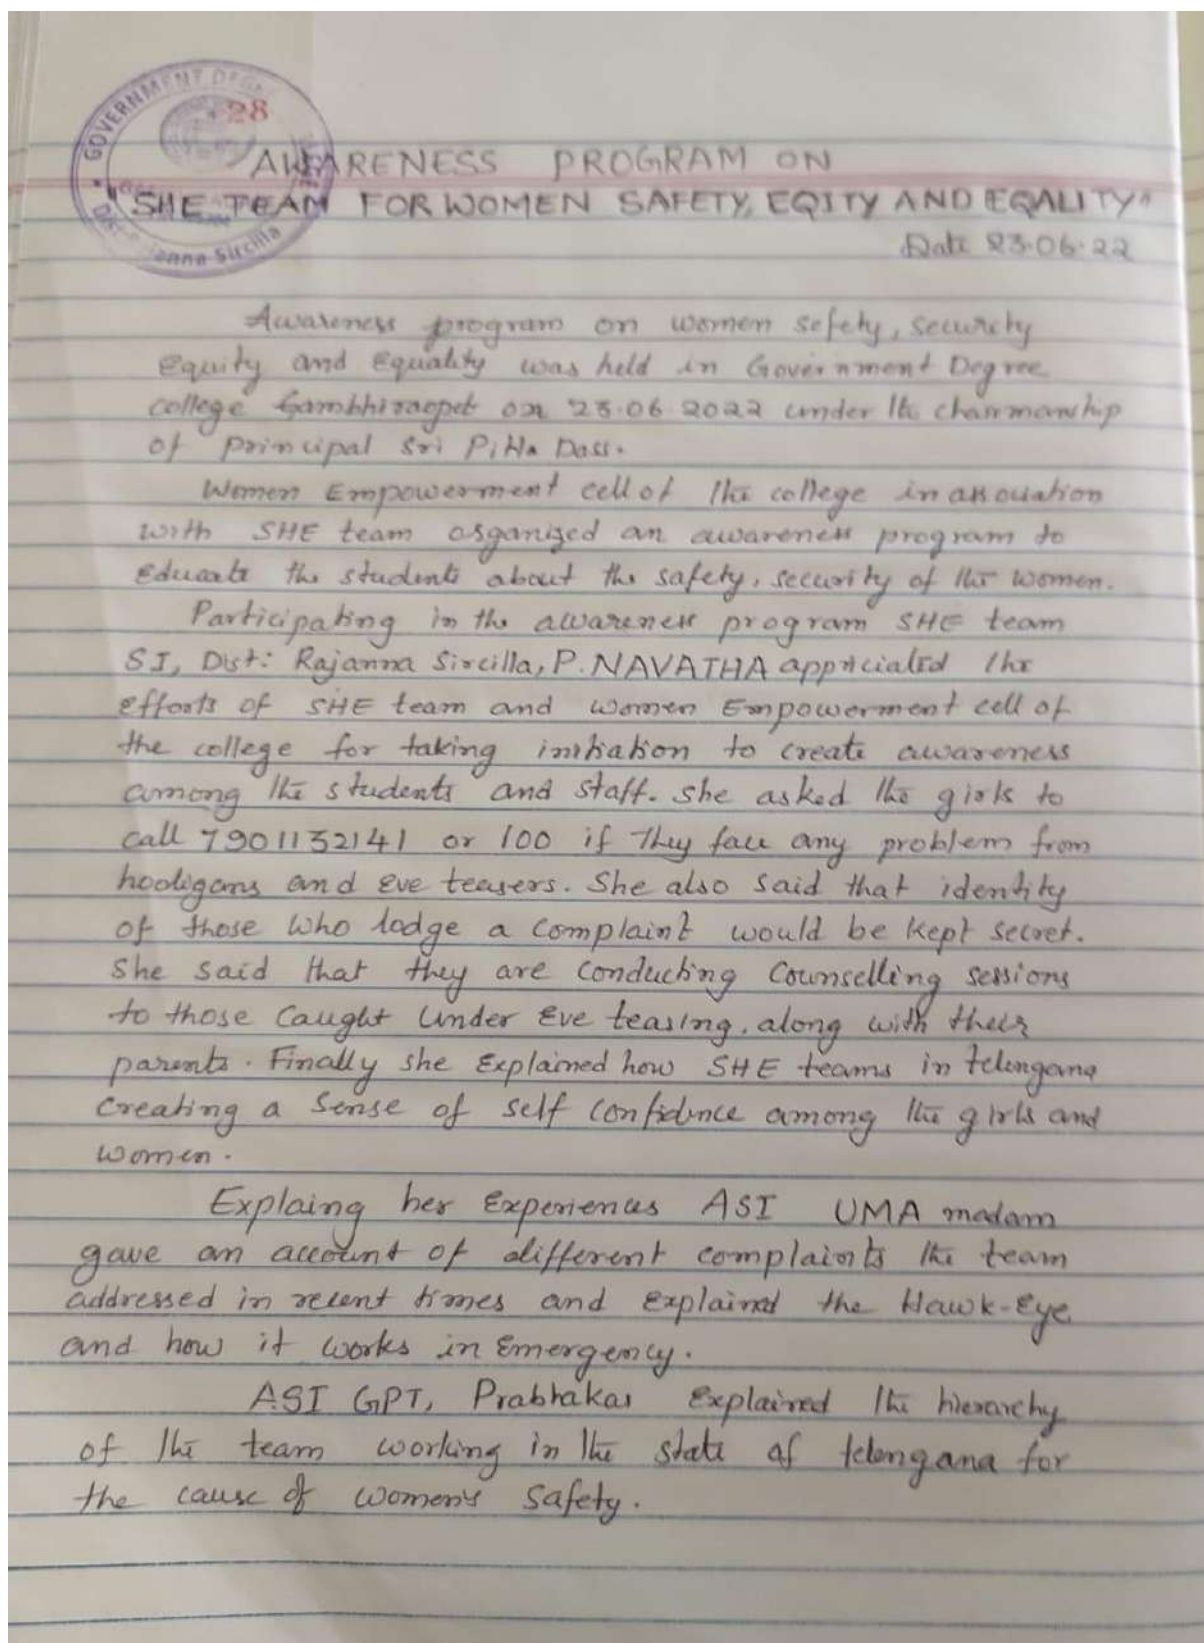 GOVERNMENT DEGREE
28
AWARENESS PROGRAM ON
"SHE TEAM FOR WOMEN SAFETY, EQITY AND EQALITY"
Dist Rajanna Sircilla
Date 23.06.22
Awareness program on women sefety, security
equity and equality was held in Government Degree
college Gambhiraopet on 23.06.2022 under the chairmanship
of principal Sri Dass.
Women Empowerment cell of the college in assouiation
with SHE team organized an awareness program to
educate the students about the safety, security of the women.
Participating in the awareness program SHE team
SI, Dist: Rajanna Sircilla, P.NAVATHA appriciated the
efforts of SHE team and women Empowerment cell of
the college for taking initiation to create awareness
among the students and staff. she asked the girls to
call 7901132141 or 100 if they face any problem from
hooligans and eve teasers. She also said that identity
of those who lodge a complaint would be kept secret.
She said that they are conducting counselling sessions
to those caught under Eve teasing, along with their
parents. Finally she explained how SHE teams in telengana
creating a sense of self confidence among the girls and
women.
Explaing her experiences ASI UMA madam
gave an account of different complaints the team
addressed in recent times and explained the Hawk-Eye
and how it works in emergency.
ASI GPT, Prabhakar explained the hierarchy
of the team working in the state of telengana for
the cause of women's safety.